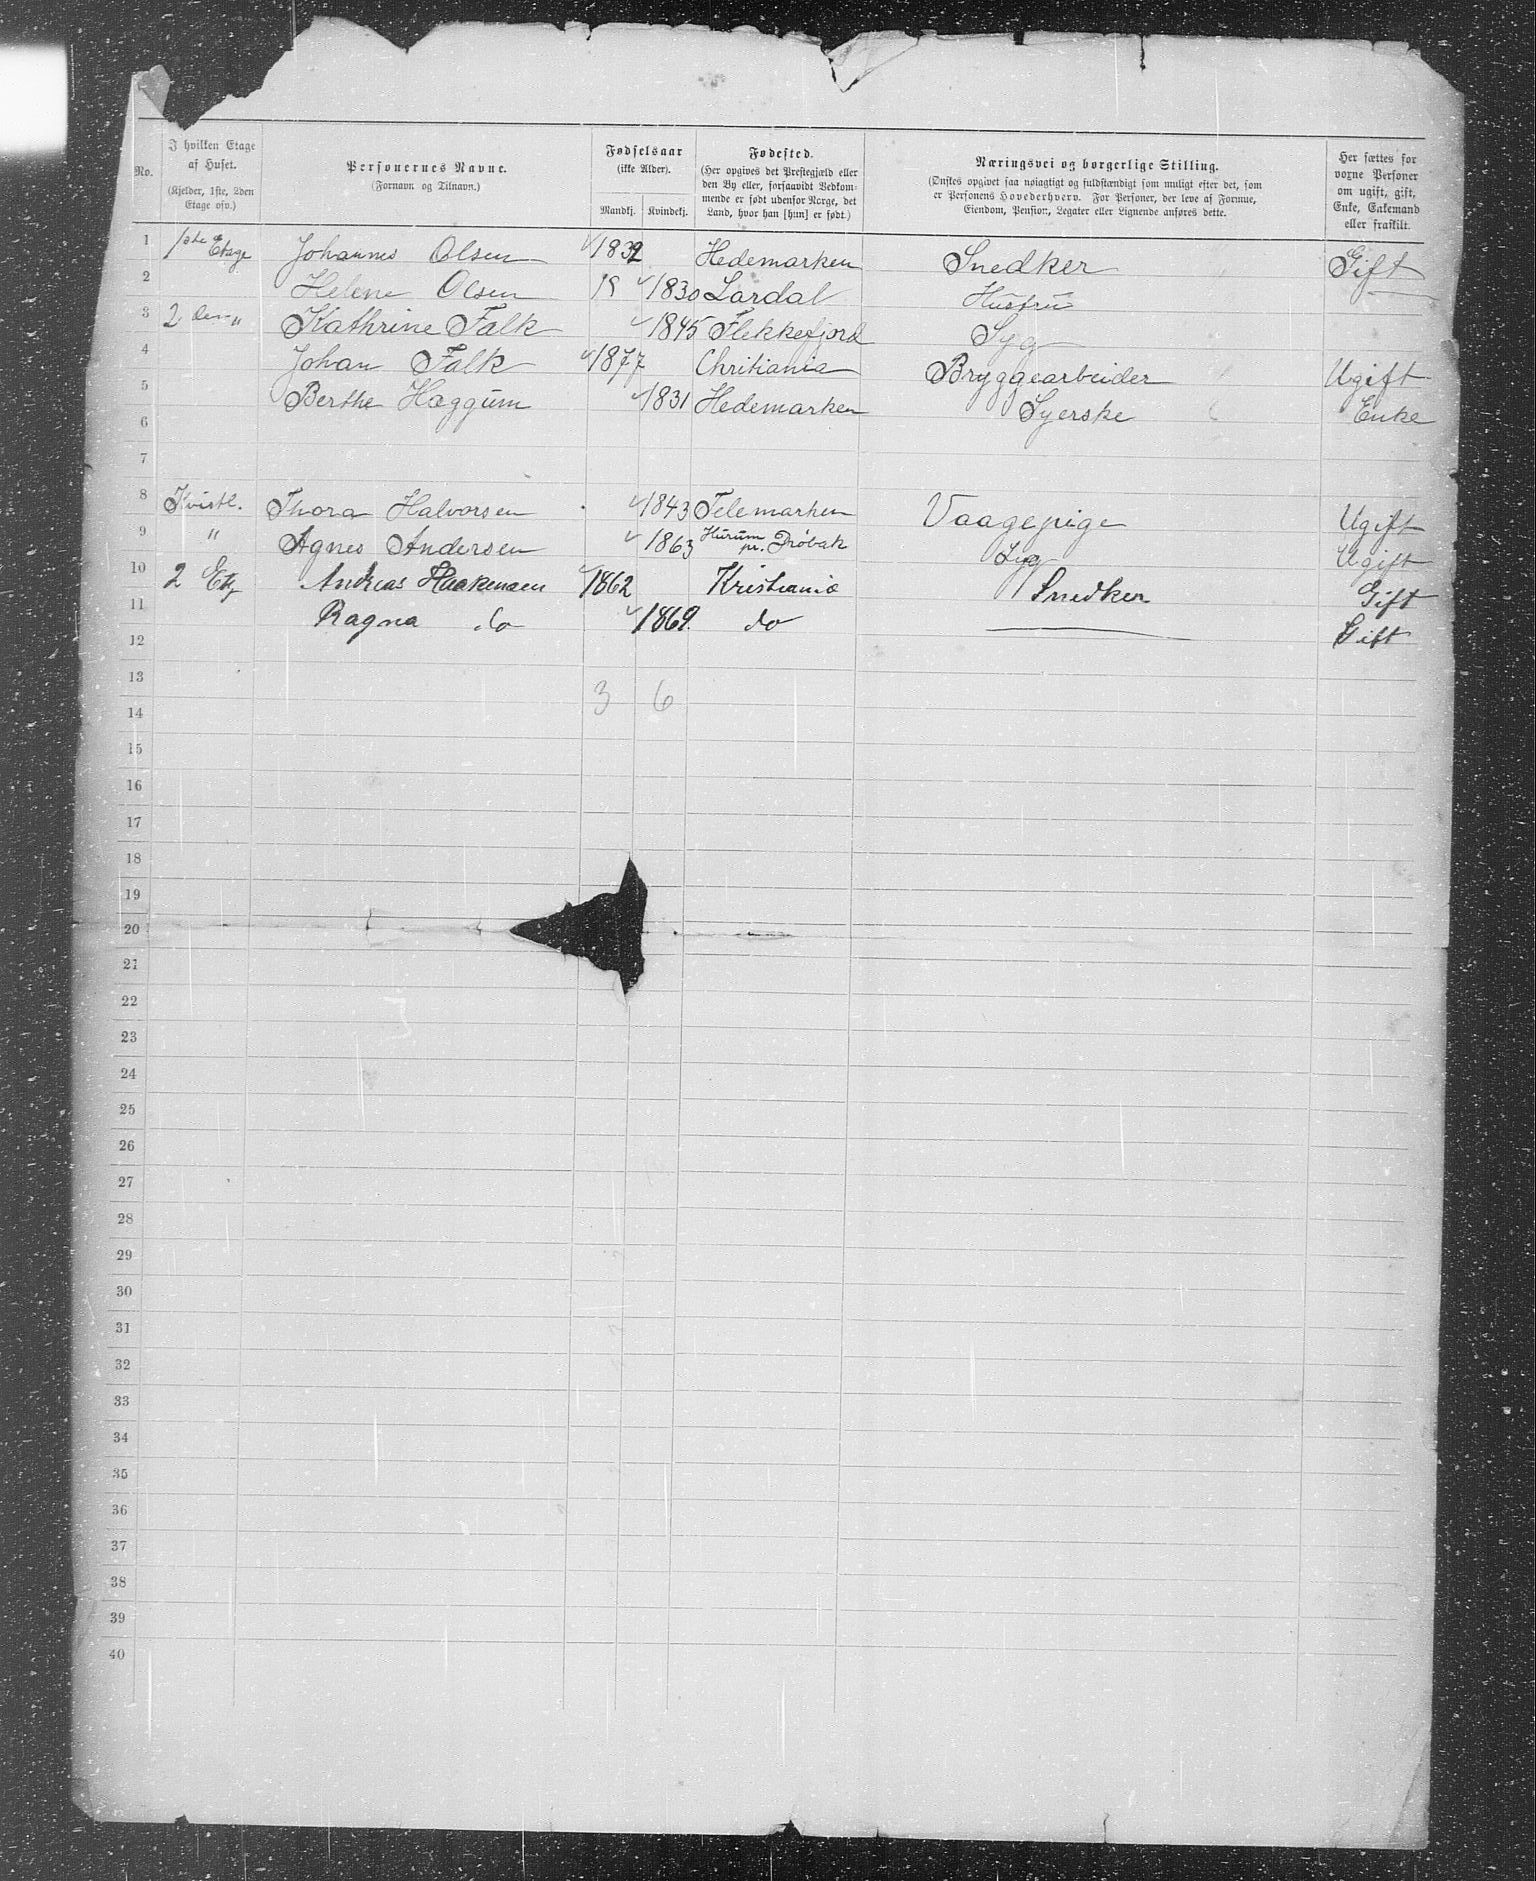 No.
I hvilken Etage af Huset. (Kjelder, 1ste, 2den Etage osv.)
Personernes Navne. (Fornavn og Tilnavn.)
Fødselsaar (ikke Alder). Mandkj. Kvindekj.
Fødested. (Her opgives det Prestegjæld eller den By eller, forsaavidt Vedkommende er født udenfor Norge, det Land, hvor han [hun] er født.)
Næringsvei og borgerlige Stilling. (Ønskes opgivet saa nøiagtigt og fuldstændigt som muligt efter det, som er Personens Hovederhverv. For Personer, der leve af Formue, Eiendom, Pension, Legater eller Lignende anføres dette.
Her sættes for vorne Personer om ugift, gift, Enke, Enkemand eller fraskilt.
1 1ste Etage Johannes Olsen 1832 Hedemarken Snedker Gift
2 Helene Olsen 18 1830 Lardal Hustru
3 2 den " Kathrine Falk 1845 Flekkefjord Syg
4 Johan Falk 1877 Chritiania Bryggearbeider Ugift
5 Berthe Haggum 1831 Hedemarken Syerske Enke
6
7
8 Kvistl. Thora Halvorsen 1843 Telemarken Vaagepige Ugift
9 " Agnes Andersen 1863 Hurum pr. Drøbak Syg Ugift
10 2 Etg Andreas Haakensen 1862 Kristiania Snedker Gift
11 Ragna do 1869 do Gift
12
13
3 6
14
15
16
17
18
19
20
21
22
23
24
25
26
27
28
29
30
31
32
33
34
35
36
37
38
39
40